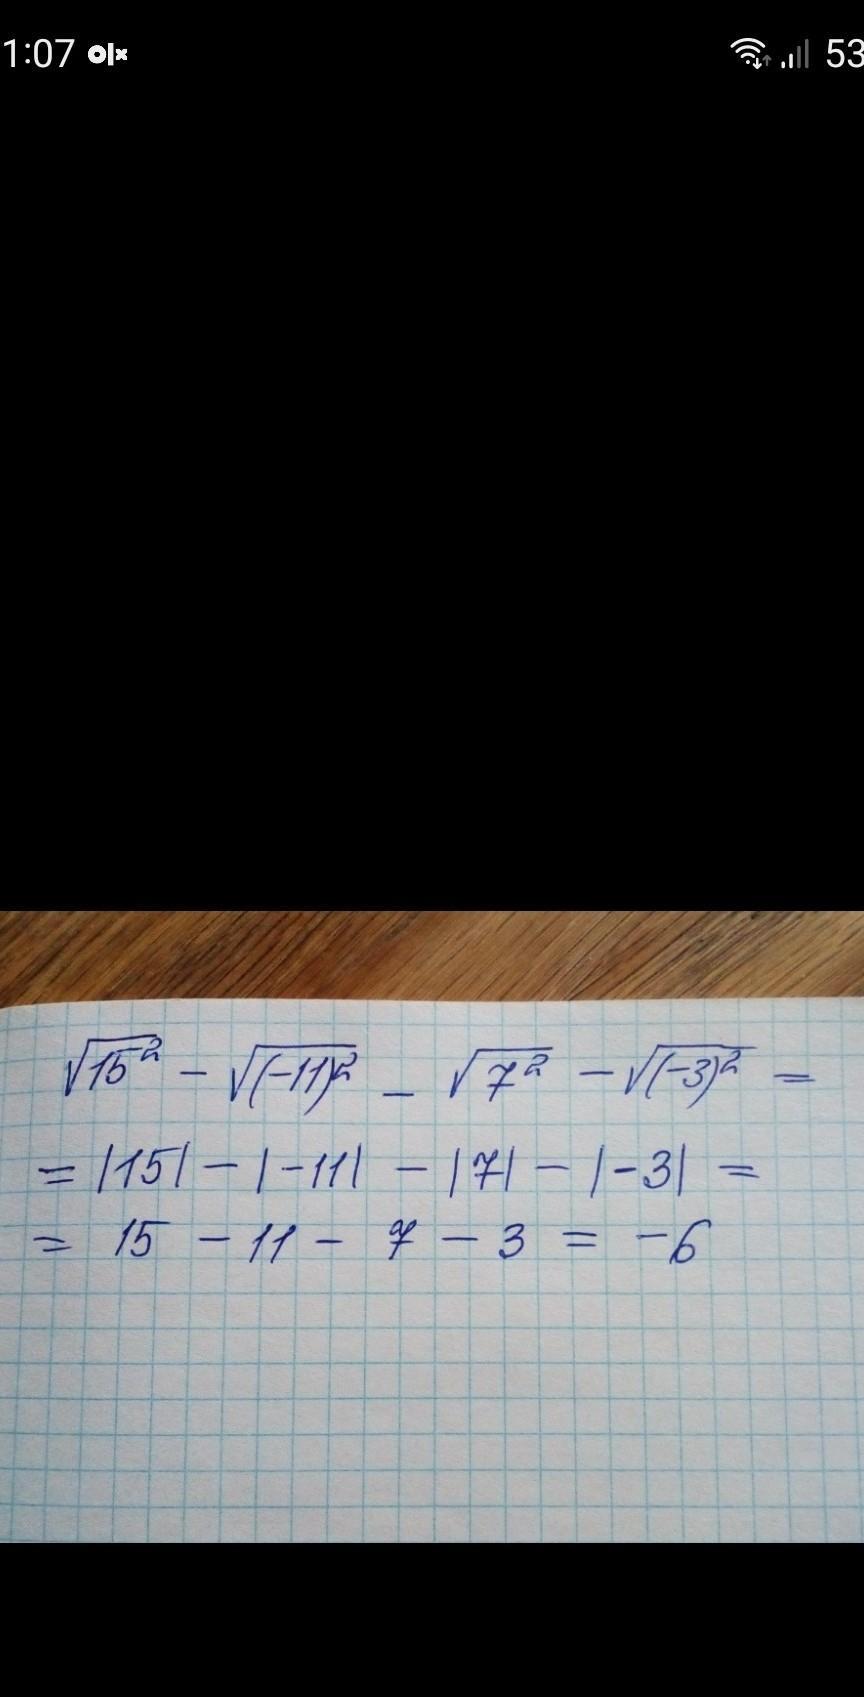 1:07 olx 53
√15² - √(-11)² - √7² - √(-3)² =
= |15| - |-11| - |7| - |-3| =
= 15 - 11 - 7 - 3 = -6